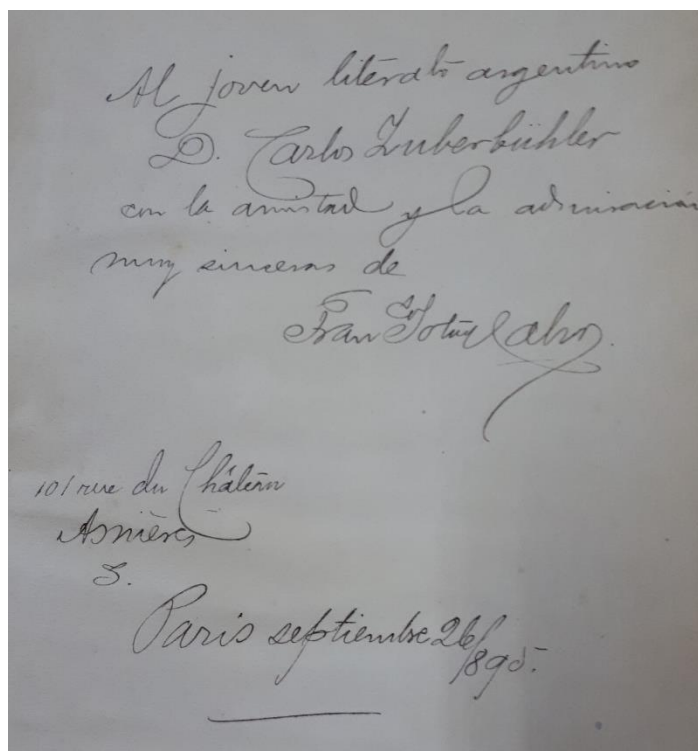 Al joven literato argentino
D. Carlos Zuberbühler
con la amistad y la admiración
muy sinceras de
Fran
101 rue du Château
Asnières
S.
Paris septiembre 26/895.